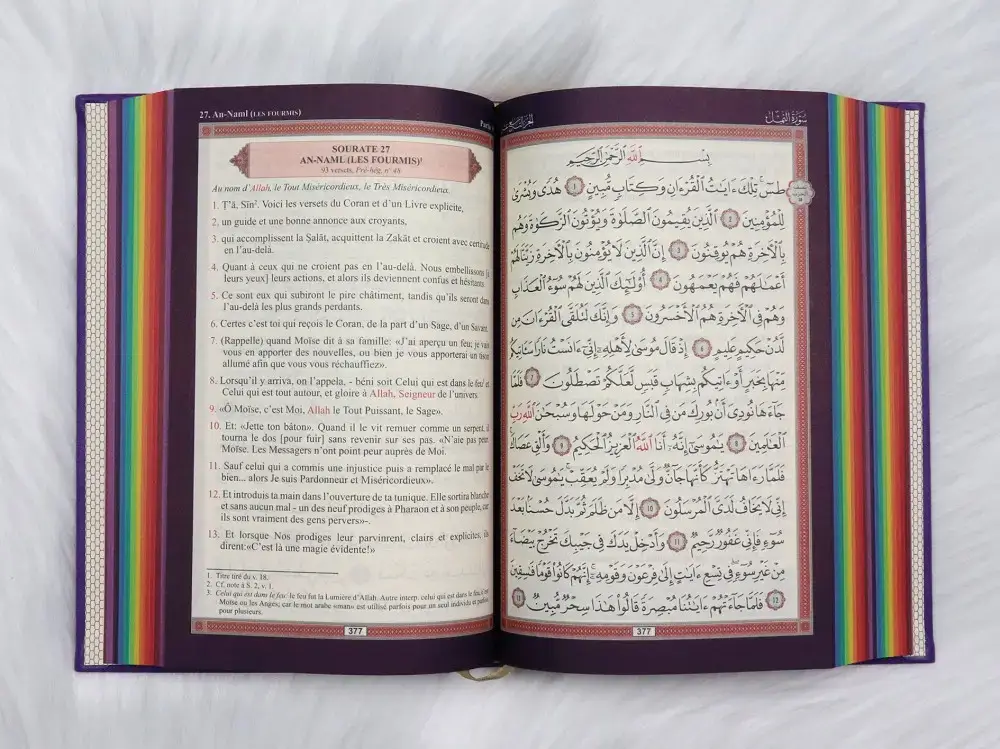 27. An-Naml (LES FOURMIS)
SOURATE 27
AN-NAML (LES FOURMIS)¹
93 versets, Pré-hég. n° 48
Au nom d'Allah, le Tout Miséricordieux, le Très Miséricordieux.
1. Ṭ'ā, Sīn². Voici les versets du Coran et d'un Livre explicite,
2. un guide et une bonne annonce aux croyants,
3. qui accomplissent la Ṣalāt, acquittent la Zakāt et croient avec certitude
en l'au-delà.
4. Quant à ceux qui ne croient pas en l'au-delà. Nous embellissons [à
leurs yeux] leurs actions, et alors ils deviennent confus et hésitants
5. Ce sont eux qui subiront le pire châtiment, tandis qu'ils seront dans
l'au-delà les plus grands perdants.
6. Certes c'est toi qui reçois le Coran, de la part d'un Sage, d'un Savant.
7. (Rappelle) quand Moïse dit à sa famille: «J'ai aperçu un feu; je vais
vous en apporter des nouvelles, ou bien je vous apporterai un tison
allumé afin que vous vous réchauffiez».
8. Lorsqu'il y arriva, on l'appela, - béni soit Celui qui est dans le feu³ et
Celui qui est tout autour, et gloire à Allah, Seigneur de l'univers.
9. «Ô Moïse, c'est Moi, Allah le Tout Puissant, le Sage».
10. Et: «Jette ton bâton». Quand il le vit remuer comme un serpent, il
tourna le dos [pour fuir] sans revenir sur ses pas. «N'aie pas peur,
Moïse. Les Messagers n'ont point peur auprès de Moi.
11. Sauf celui qui a commis une injustice puis a remplacé le mal par le
bien... alors Je suis Pardonneur et Miséricordieux».
12. Et introduis ta main dans l'ouverture de ta tunique. Elle sortira blanche
et sans aucun mal - un des neuf prodiges à Pharaon et à son peuple, car
ils sont vraiment des gens pervers»-.
13. Et lorsque Nos prodiges leur parvinrent, clairs et explicites, ils
dirent:«C'est là une magie évidente!»
1. Titre tiré du v. 18.
2. Cf. note à S. 2, v. 1.
3. Celui qui est dans le feu: le feu fut la Lumière d'Allah. Autre interp. celui qui est dans le feu, c'est
Moïse ou les Anges; car le mot arabe «man» est utilisé parfois pour un seul individu et parfois
pour plusieurs.
377
سُورَةُ النَّمْلِ
بِسْمِ ٱللَّهِ ٱلرَّحْمَٰنِ ٱلرَّحِيمِ
طسٓ تِلْكَ ءَايَٰتُ ٱلْقُرْءَانِ وَكِتَابٍ مُّبِينٍ 1 هُدًى وَبُشْرَىٰ
لِلْمُؤْمِنِينَ 2 ٱلَّذِينَ يُقِيمُونَ ٱلصَّلَوٰةَ وَيُؤْتُونَ ٱلزَّكَوٰةَ وَهُم
بِٱلْءَاخِرَةِ هُمْ يُوقِنُونَ 3 إِنَّ ٱلَّذِينَ لَا يُؤْمِنُونَ بِٱلْءَاخِرَةِ زَيَّنَّا لَهُمْ
أَعْمَٰلَهُمْ فَهُمْ يَعْمَهُونَ 4 أُوْلَٰٓئِكَ ٱلَّذِينَ لَهُمْ سُوٓءُ ٱلْعَذَابِ
وَهُمْ فِى ٱلْءَاخِرَةِ هُمُ ٱلْأَخْسَرُونَ 5 وَإِنَّكَ لَتُلَقَّى ٱلْقُرْءَانَ مِن
لَّدُنْ حَكِيمٍ عَلِيمٍ 6 إِذْ قَالَ مُوسَىٰ لِأَهْلِهِۦٓ إِنِّىٓ ءَانَسْتُ نَارًا سَـَٔاتِيكُم
مِّنْهَا بِخَبَرٍ أَوْ ءَاتِيكُم بِشِهَابٍ قَبَسٍ لَّعَلَّكُمْ تَصْطَلُونَ 7 فَلَمَّا
جَآءَهَا نُودِىَ أَنۢ بُورِكَ مَن فِى ٱلنَّارِ وَمَنْ حَوْلَهَا وَسُبْحَٰنَ ٱللَّهِ رَبِّ
ٱلْعَٰلَمِينَ 8 يَٰمُوسَىٰٓ إِنَّهُۥٓ أَنَا ٱللَّهُ ٱلْعَزِيزُ ٱلْحَكِيمُ 9 وَأَلْقِ عَصَاكَ
فَلَمَّا رَءَاهَا تَهْتَزُّ كَأَنَّهَا جَآنٌّ وَلَّىٰ مُدْبِرًا وَلَمْ يُعَقِّبْ يَٰمُوسَىٰ لَا تَخَفْ
إِنِّى لَا يَخَافُ لَدَىَّ ٱلْمُرْسَلُونَ 10 إِلَّا مَن ظَلَمَ ثُمَّ بَدَّلَ حُسْنًۢا بَعْدَ
سُوٓءٍ فَإِنِّى غَفُورٌ رَّحِيمٌ 11 وَأَدْخِلْ يَدَكَ فِى جَيْبِكَ تَخْرُجْ بَيْضَآءَ
مِنْ غَيْرِ سُوٓءٍ فِى تِسْعِ ءَايَٰتٍ إِلَىٰ فِرْعَوْنَ وَقَوْمِهِۦٓ إِنَّهُمْ كَانُوا۟ قَوْمًا فَٰسِقِينَ
12 فَلَمَّا جَآءَتْهُمْ ءَايَٰتُنَا مُبْصِرَةً قَالُوا۟ هَٰذَا سِحْرٌ مُّبِينٌ 13
377